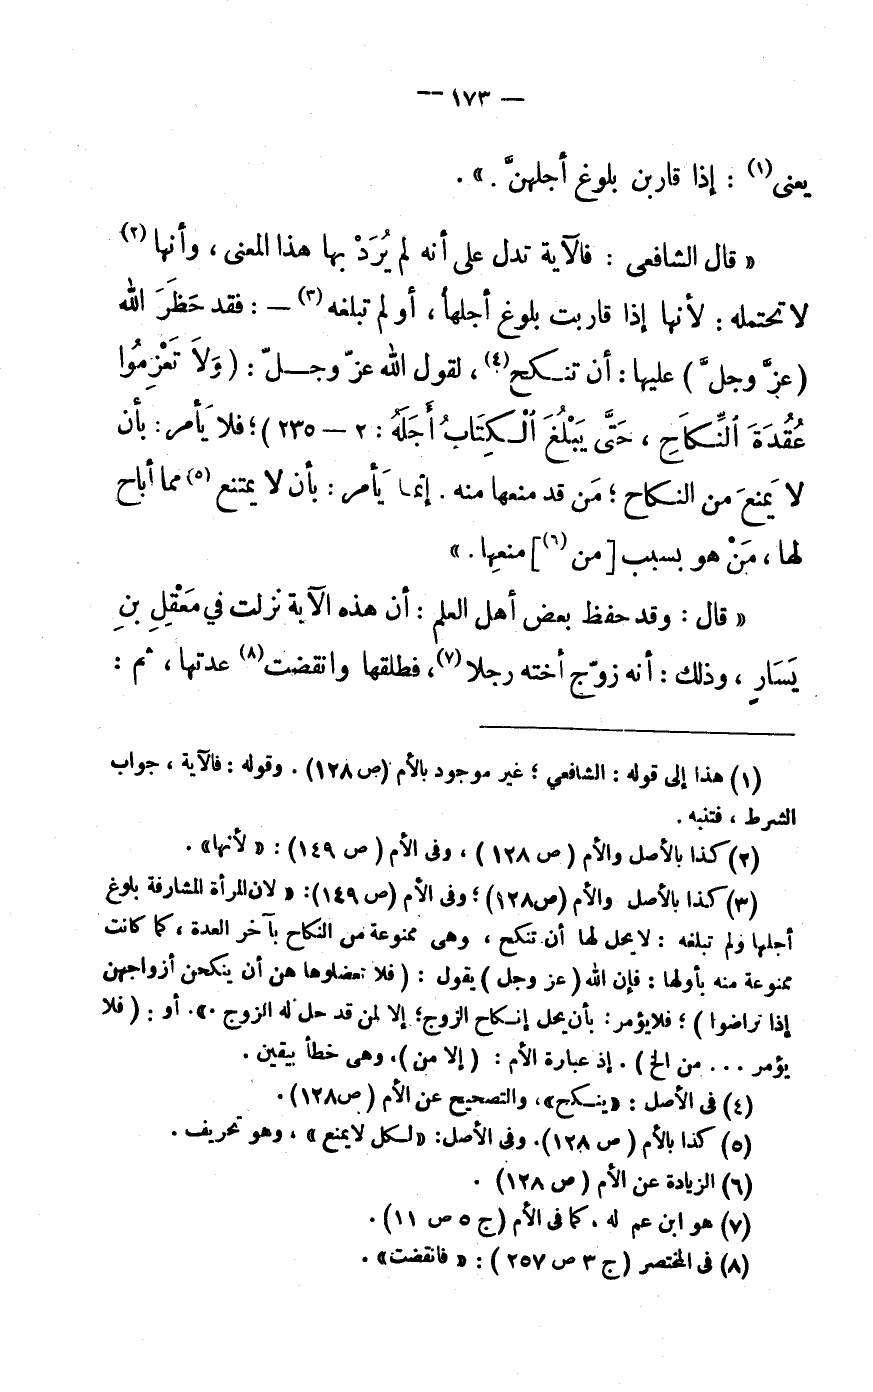 — ١٧٣ —
يعنى (١) : إذا قاربن بلوغ أجلهنَّ . » .
« قال الشافعى : فالآية تدل على أنه لم يُرَدْ بها هذا المعنى ، وأنها (٢)
لا تحتمله : لأنها إذا قاربت بلوغ أجلها ، أو لم تبلغه (٣) — : فقد حَظَرَ الله
(عزَّ وجلَّ) عليها : أن تنكح (٤) ، لقول الله عزّ وجلّ : (وَلاَ تَعْزِمُوا
عُقْدَةَ ٱلنِّكَاحِ ، حَتَّى يَبْلُغَ ٱلْكِتَابُ أَجَلَهُ : ٢ — ٢٣٥) ؛ فلا يَأمر : بأن
لا يَمنعَ من النكاح ؛ مَن قد منعها منه . إنما يَأمر : بأن لا يمتنع (٥) مما أباح
لها ، مَنْ هو بسبب [من (٦)] منعِها . »
« قال : وقد حفظ بعض أهل العلم : أن هذه الآية نزلت في مَعْقِلِ بنِ
يَسَارٍ ، وذلك : أنه زوّج أخته رجلا (٧) ، فطلقها وانقضت (٨) عدتها ، ثم :
(١) هذا إلى قوله : الشافعي ؛ غير موجود بالأم (ص ١٢٨) . وقوله : فالآية ، جواب
الشرط ، فتنبه .
(٢) كذا بالأصل والأم (ص ١٢٨) ، وفى الأم (ص ١٤٩) : « لأنها» .
(٣) كذا بالأصل والأم (ص١٢٨) ؛ وفى الأم (ص ١٤٩): « لان المرأة المشارفة بلوغ
أجلها ولم تبلغه : لا يحل لها أن تنكح ، وهى ممنوعة من النكاح بآخر العدة ، كما كانت
ممنوعة منه بأولها : فإن الله (عز وجل) يقول : (فلا تعضلوها هن أن ينكحن أزواجهن
إذا تراضوا) ؛ فلا يؤمر : بأن يحل إنكاح الزوج ؛ إلا لمن قد حل له الزوج .» . أو : (فلا
يؤمر ... من الخ) . إذ عبارة الأم : (إلا من) . وهى خطأ بيقين .
(٤) فى الأصل : «ينكح» ، والتصحيح عن الأم (ص١٢٨) .
(٥) كذا بالأم (ص ١٢٨) . وفى الأصل : «لكل لا يمنع» ، وهو تحريف .
(٦) الزيادة عن الأم (ص ١٢٨) .
(٧) هو ابن عم له ، كما فى الأم (ج ٥ ص ١١) .
(٨) فى المختصر (ج ٣ ص ٢٥٧) : « فانقضت» .